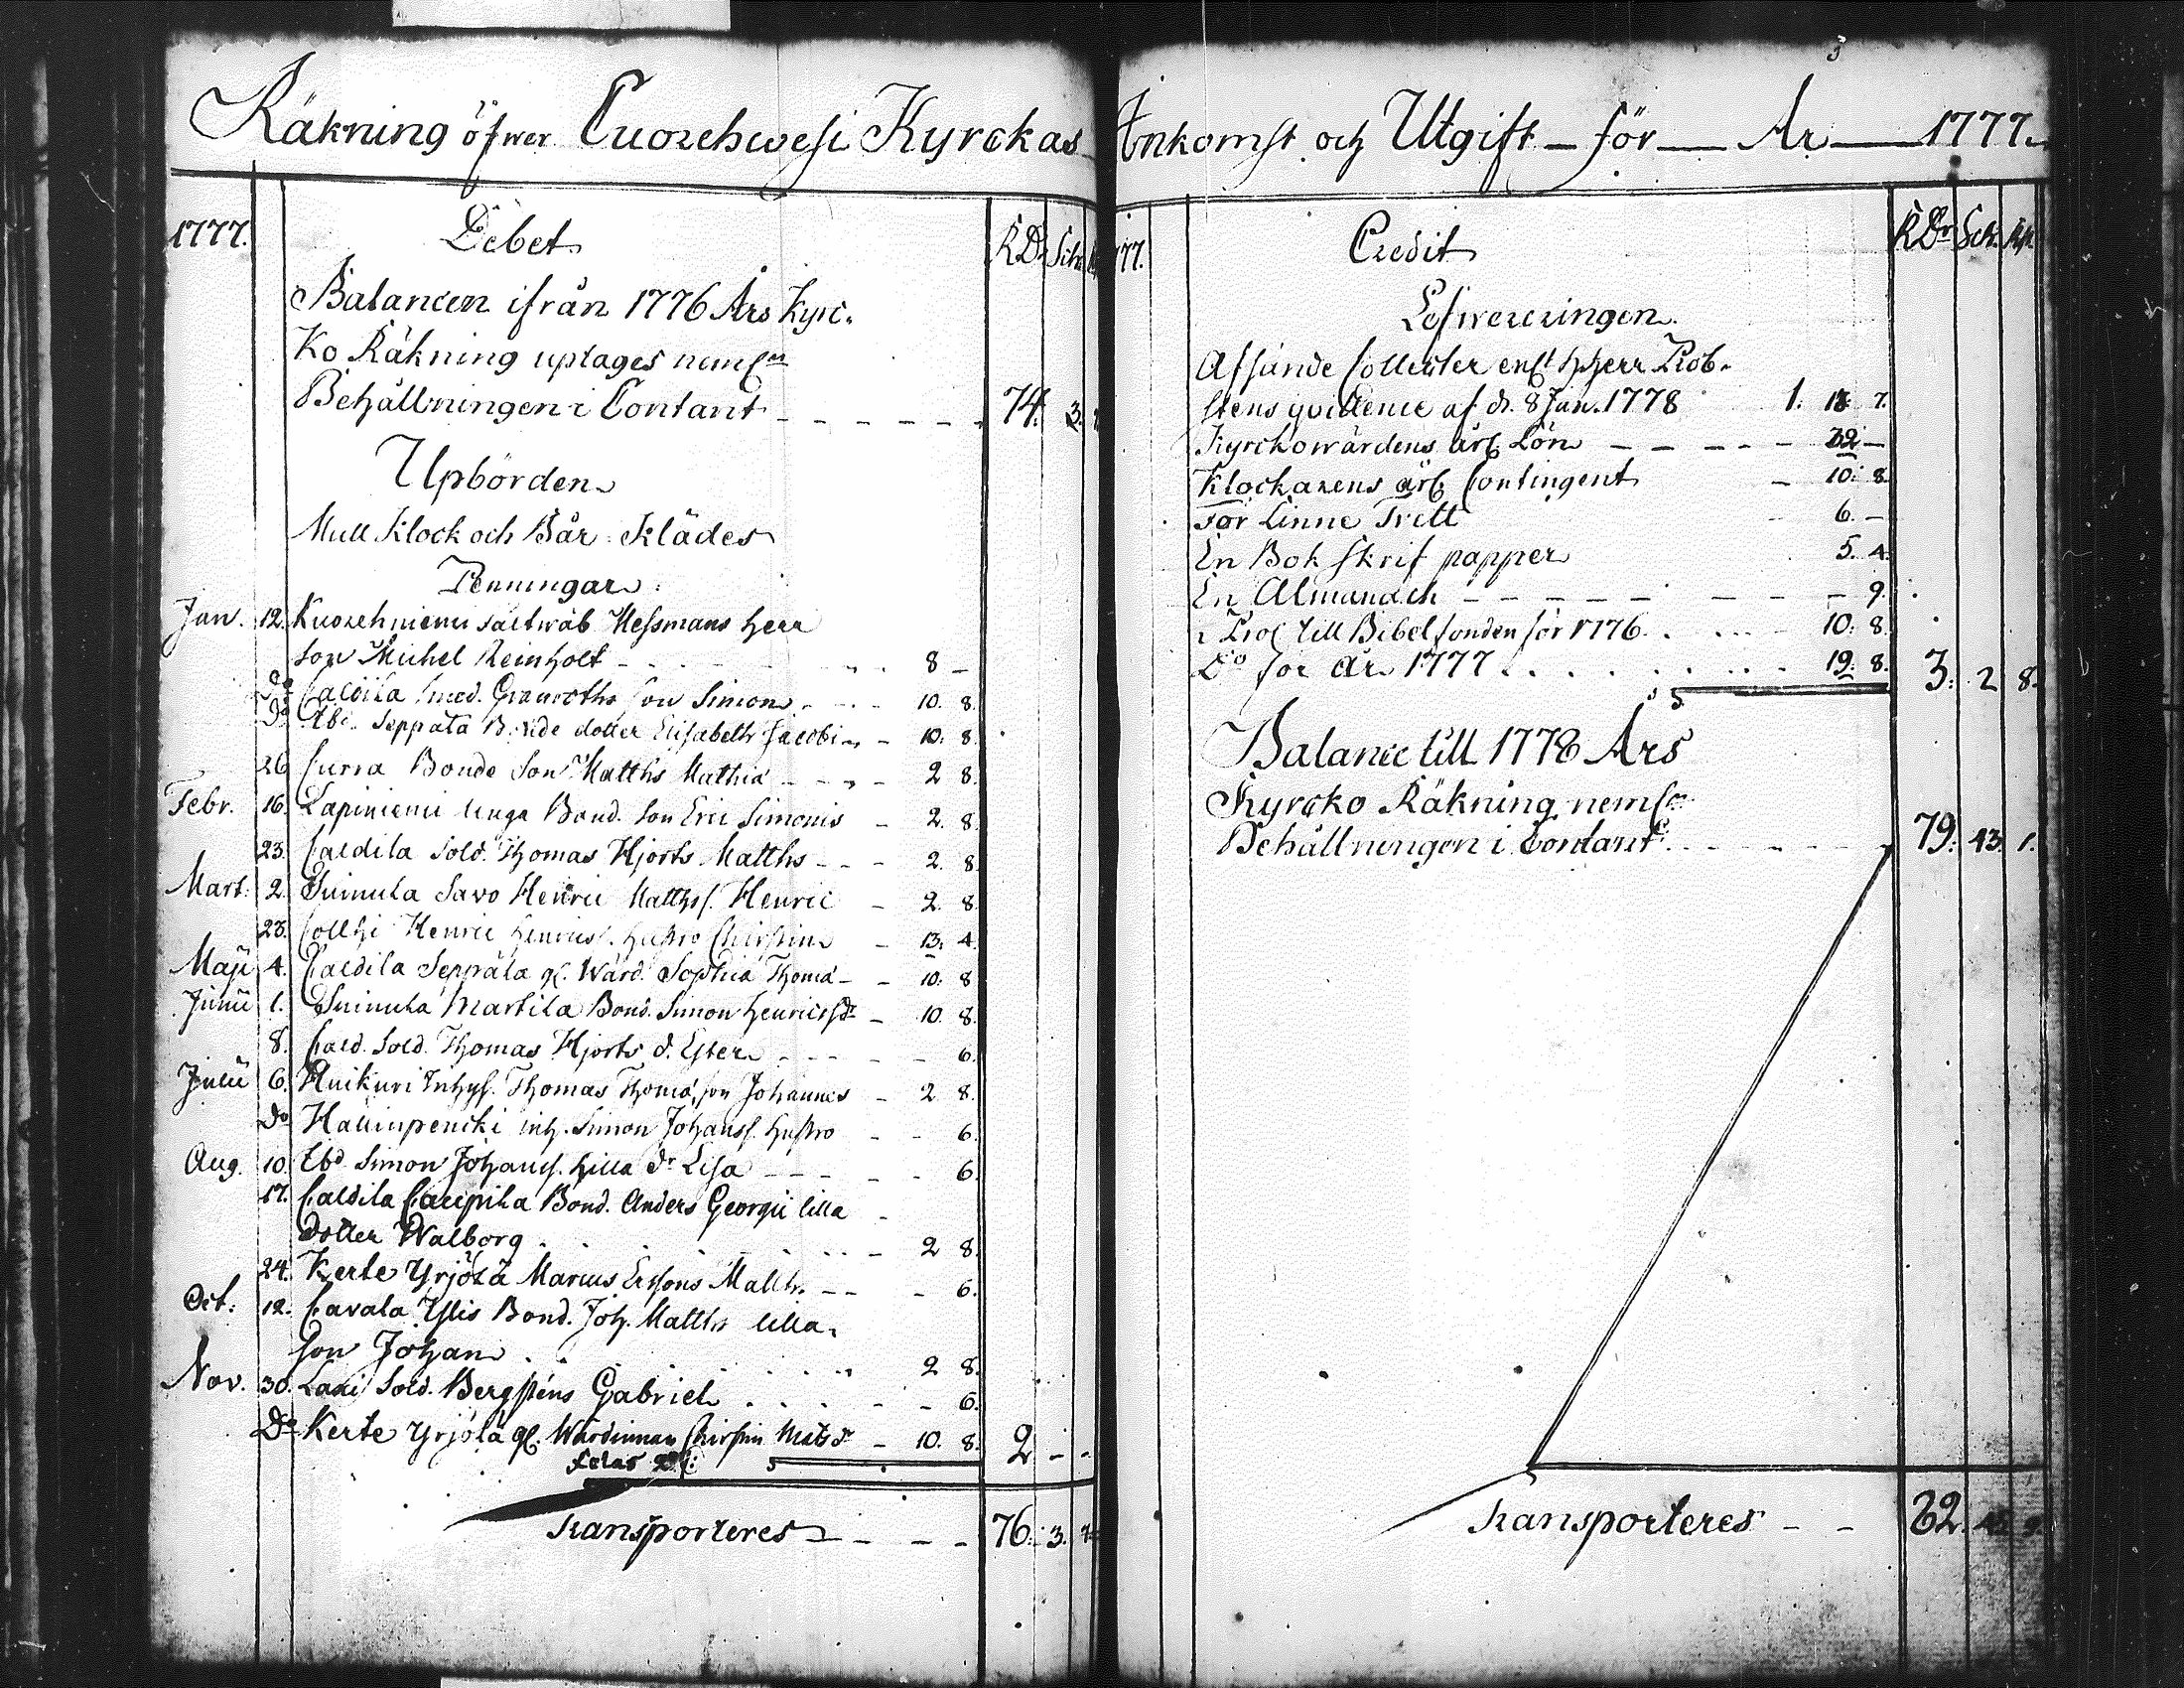 Räkning öfwer Cuorehwesi Kyrckas Inkomst och Utgift för År 1777.
1777. Debet RD: Sch:
Balancen ifrån 1776 Års Kyrc-
Ko Räkning uptages neml:n
Behållningen i Contant 74. 3.
Upbörden
Mull Klock och Bår-Klädes
Penningar
Jan. 12. Kuorehniemi Hessmans herr
Son Michel Reinholt 8 -
Do Caldila smed. Granroths son Simon 10. 8.
Do Ibi. Seppälä Bonde dotter Elisabeth Jacobi 10. 8.
26 Curra Bonde Son Matths Mathiæ 2 8.
Febr. 16. Lapiniemi unga Bond. Son Eric Simonis 2. 8.
23. Caldila Sold. Thomas Hjorts Matths 2. 8.
Mart. 2. Suinula Savo Henric Matthss. Henric 2. 8.
23. Collhi Henric Henrics. hustro Chirstin 13. 4.
Maji 4. Caldila Seppälä gl. Wärd. Sophia Thomæ 10. 8
Junii 1. Suinula Martila Bond. Simon Henricssdr 10. 8.
8. Cald. Sold. Thomas Hjorts d. Ester 6.
Julii 6. Huikuri Inhys. Thomas Thomæ son Johannes 2 8.
Do Hallinpencki inh. Simon Johanss. hustro 6.
Aug. 10. Ibd Simon Johanss. lilla dr Lisa 6.
17. Caldila Caupila Bond. Anders Georgii lilla
dotter Walborg 2 8.
24. Kerte Yrjölä Marcus Ersons Matth. 6.
Oct: 12. Cavala Ylis Bond. Joh. Matths lilla
son Johan 2 8.
Nov. 30. Lari Sold. Bergsténs Gabriel 6.
Do Kerte Yrjölä gl. Wärdinnan Chirstin Matsdr 10. 8. 2 - -
Transporteres 76. 3.
77. Credit RDr Sch.
Lefwereringen
Afsände Collecter enl. hherr Prob-
stens qvittence af d. 8 Jan. 1778 1. 18 7.
Kyrckowärdens årl. Lön 32 -
Klockarens årl. Contingent 10. 8.
För Linne Tvätt 6. -
En Bok Skrif papper 5. 4.
En Almanach 9.
1 Proc till Bibelfonden för 1776. 10. 8.
Do för år 1777 19. 8. 3. 2 8.
Balance till 1778 Års
Kyrcko Räkning neml:n
Behållningen i Contant 79. 43. 1.
Transporteres 82. 45. 9.